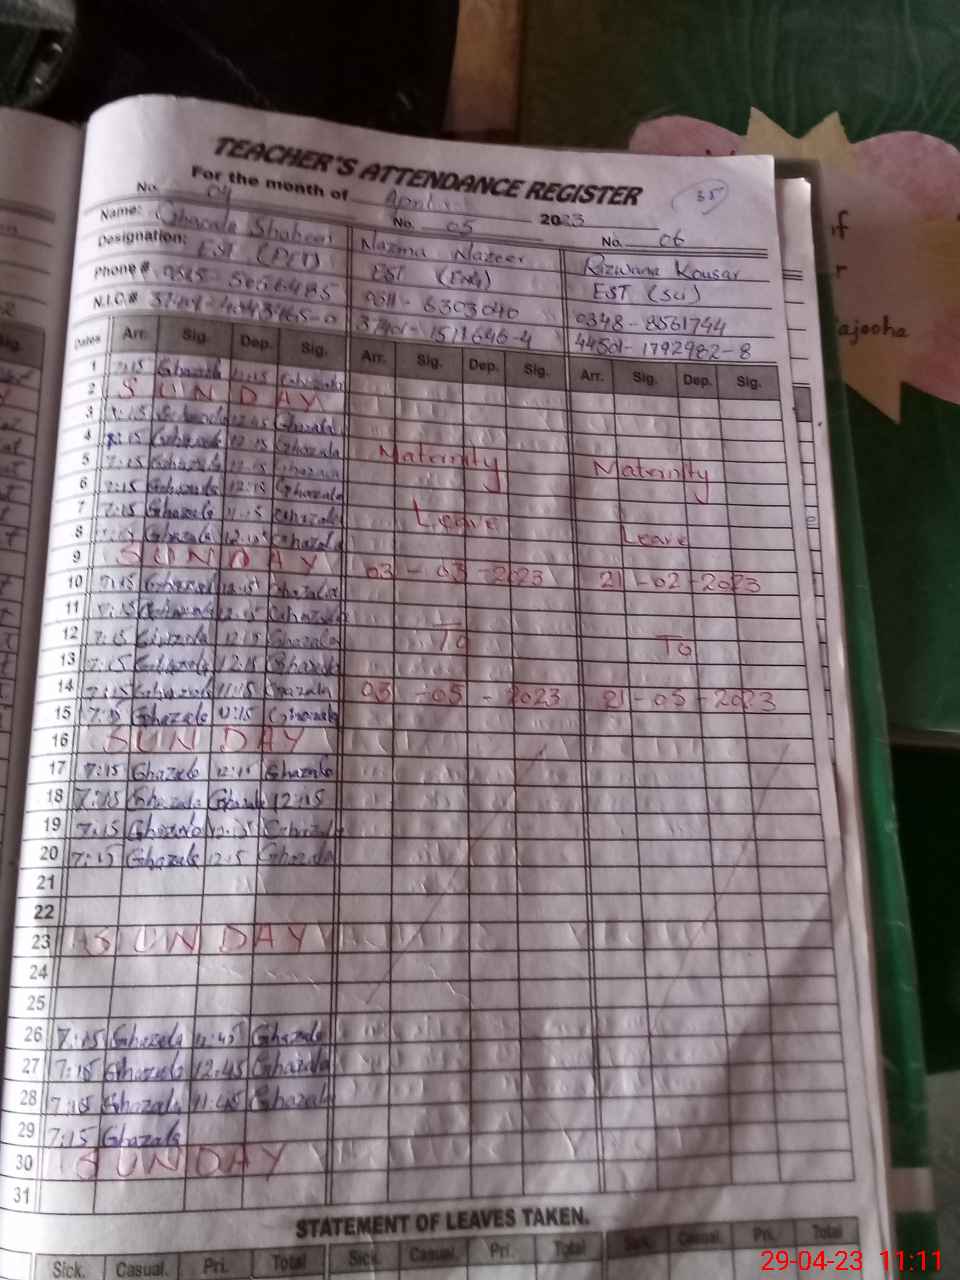 TEACHER'S ATTENDANCE REGISTER
For the month of April 2023
35
No. 04 No. 05 No. 06
Name: Ghazala Shaheen Nazma Nazeer Rizwana Kousar
Designation: EST EST (Eng) EST (Sci)
Phone # 0311-6303040 0348-8561744
N.I.C.# 44501-1792982-8
Dates Arr. Sig. Dep. Sig. Arr. Sig. Dep. Sig. Arr. Sig. Dep. Sig.
1 7:15 Ghazala 11:15 Ghazala
2 SUNDAY
3 7:15 Ghazala 12:45 Ghazala
4 7:15 Ghazala 12:15 Ghazala Maternity
5 7:15 Ghazala 12:15 Ghazala Maternity
6 7:15 Ghazala 12:15 Ghazala
7 7:15 Ghazala 11:15 Ghazala Leave
8 Ghazala 12:15 Ghazala Leave
9 SUNDAY 03-03-2023 21-02-2023
10 7:15 Ghazala 12:15 Ghazala
11 7:15 Ghazala 12:15 Ghazala
12 7:15 Ghazala 12:15 Ghazala To To
13 7:15 Ghazala 12:15 Ghazala
14 7:15 Ghazala 11:15 Ghazala 03-05-2023 21-05-2023
15 7:15 Ghazala 11:15 Ghazala
16 SUNDAY
17 7:15 Ghazala 12:15 Ghazala
18 7:15 Ghazala Ghazala 12:15
19 7:15 Ghazala 12:15 Ghazala
20 7:15 Ghazala 12:15 Ghazala
21
22
23 SUNDAY
24
25
26 7:15 Ghazala 12:45 Ghazala
27 7:15 Ghazala 12:45 Ghazala
28 7:15 Ghazala 11:45 Ghazala
29 7:15 Ghazala
30 SUNDAY
31
STATEMENT OF LEAVES TAKEN.
Sick. Casual. Pri. Total Sick. Casual. Pri. Total Sick. Casual. Pri. Total
29-04-23 11:11